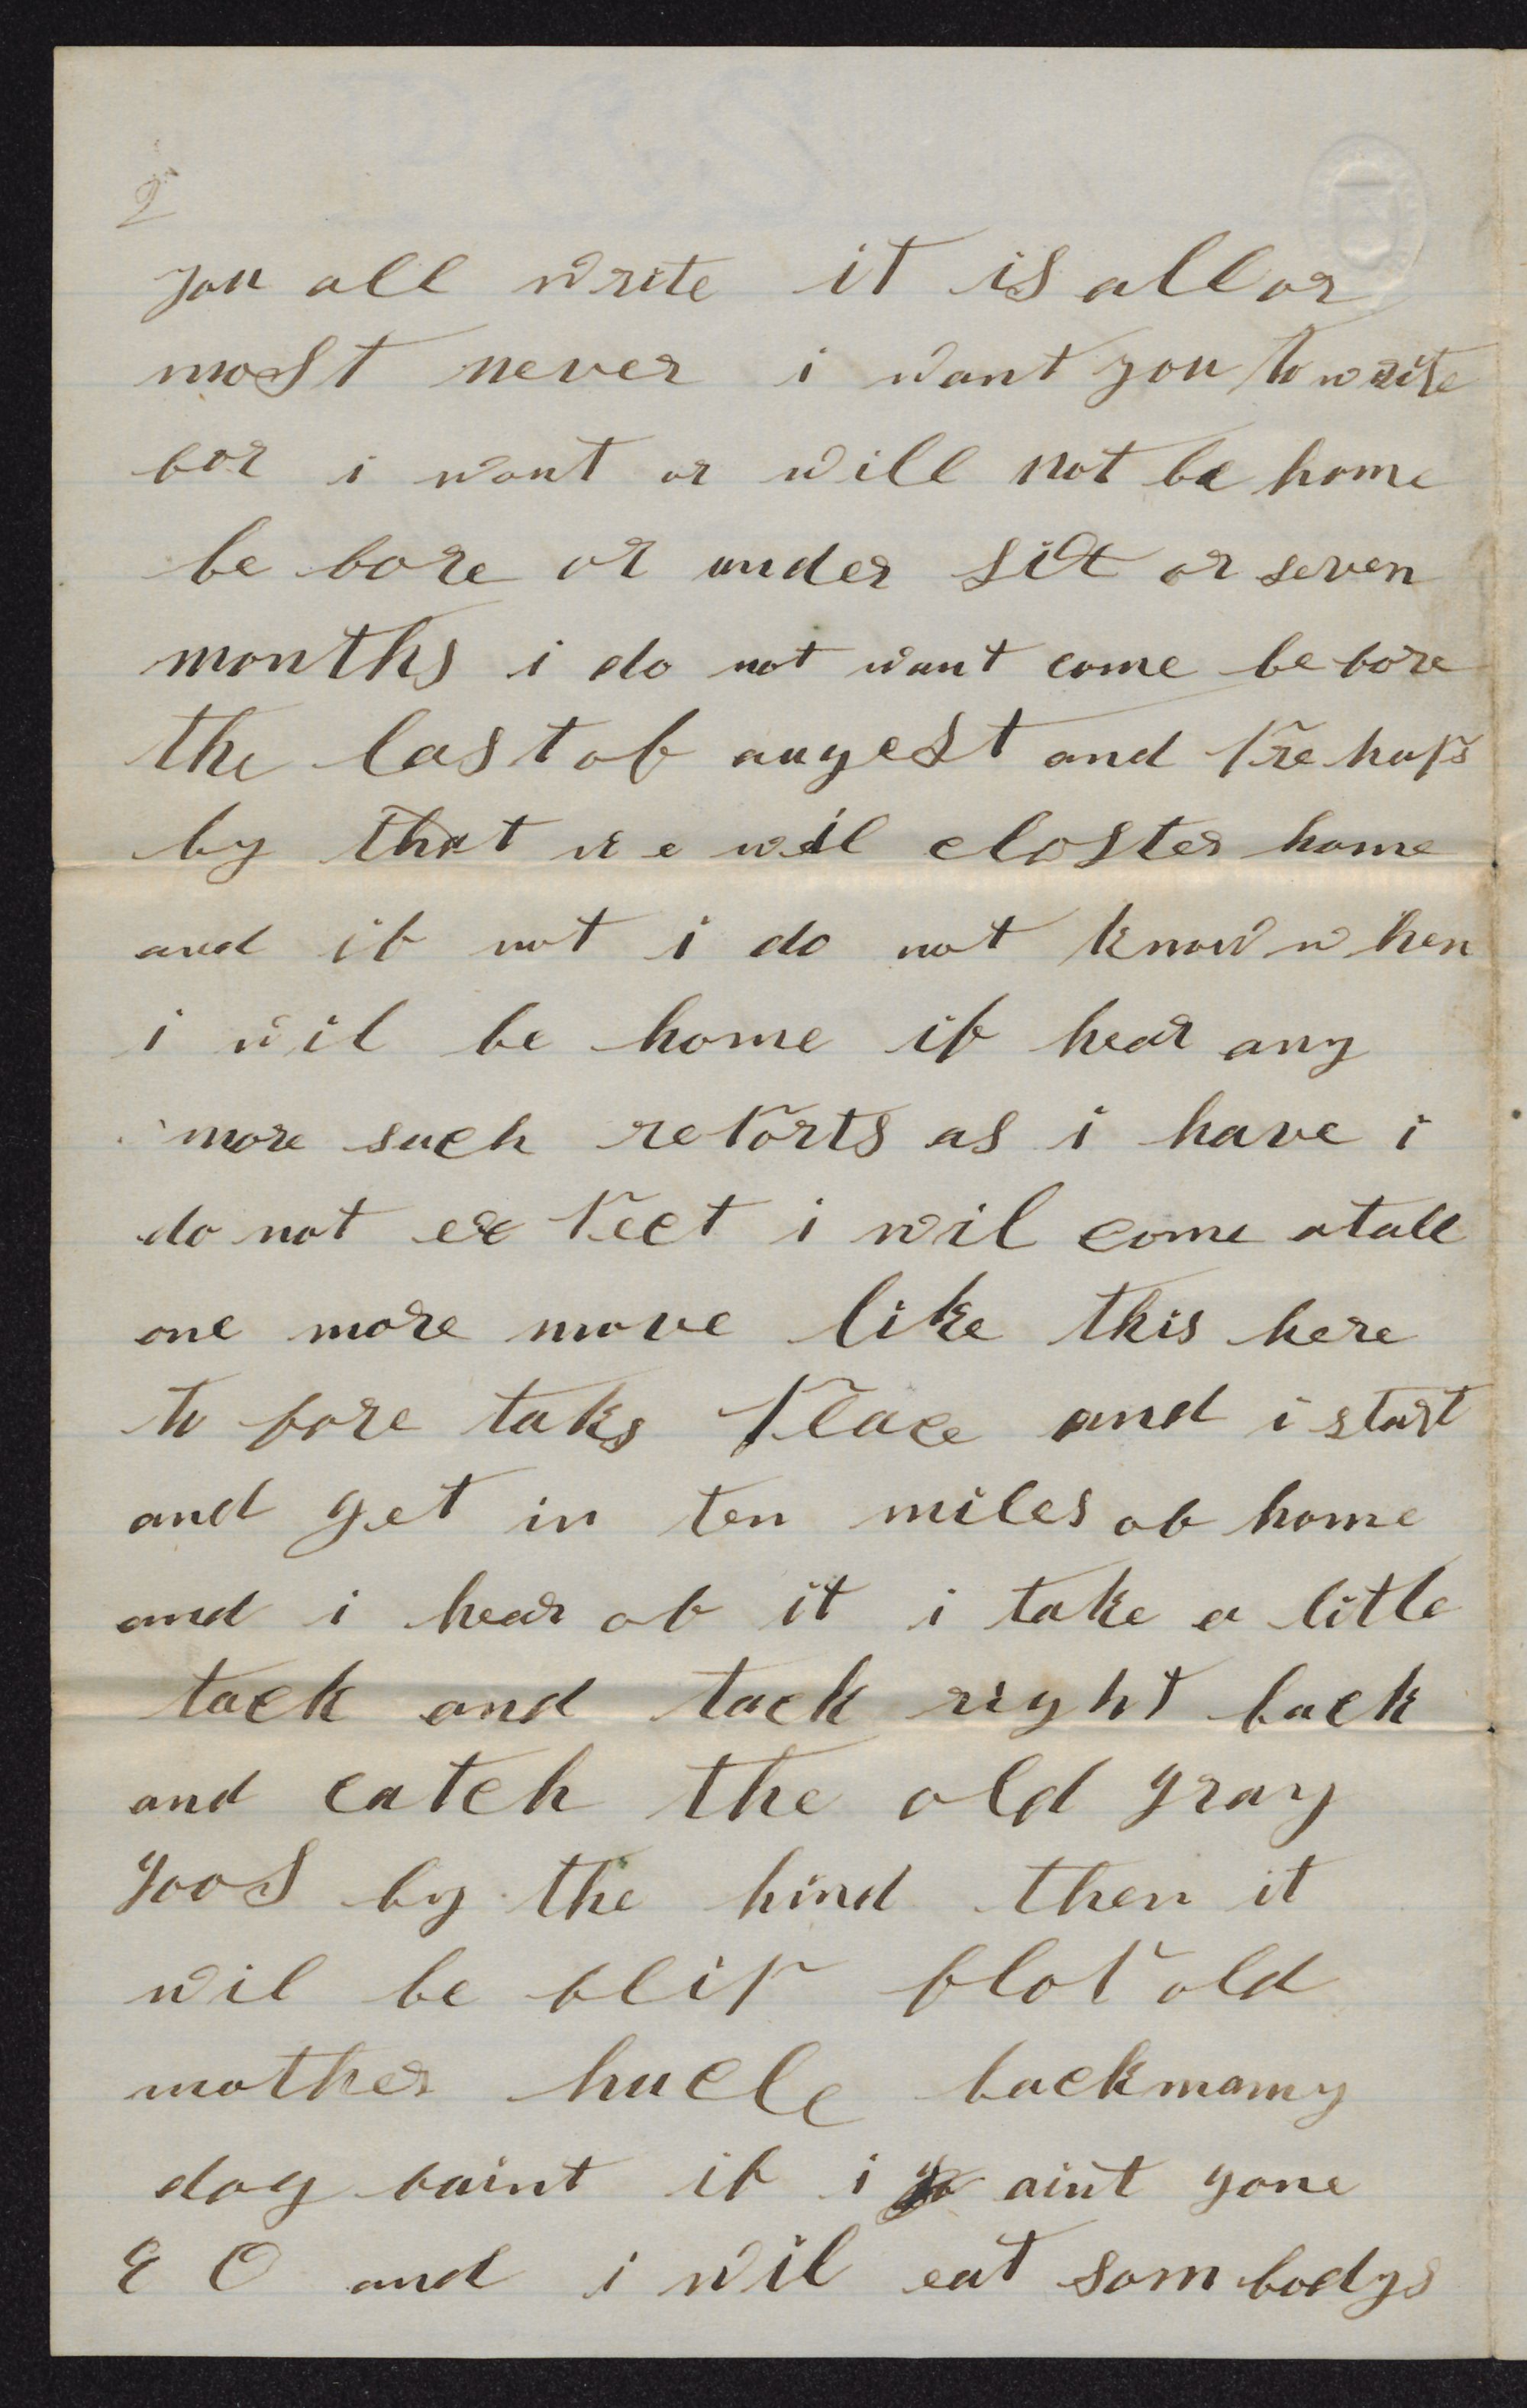 2
you all write it is all or
most never i want you to write
for i wont or will not be home
be fore or under six or seven
months i do not want come be fore
the last of augest and prehaps
by that we wil closter home
and if not i do not know when
i wil be home if hear any
more such reports as i have i
do not expect i wil come atall
one more move like this here
to fore taks place and i start
and get in ten miles of home
and i hear of it i take a litle
tack and tack right back
and catch the old gray
goos by the hind then it
wil be flip flop old
mother hucle back mamy
dog faint if i aint gone
E O and i wil eat som bodys